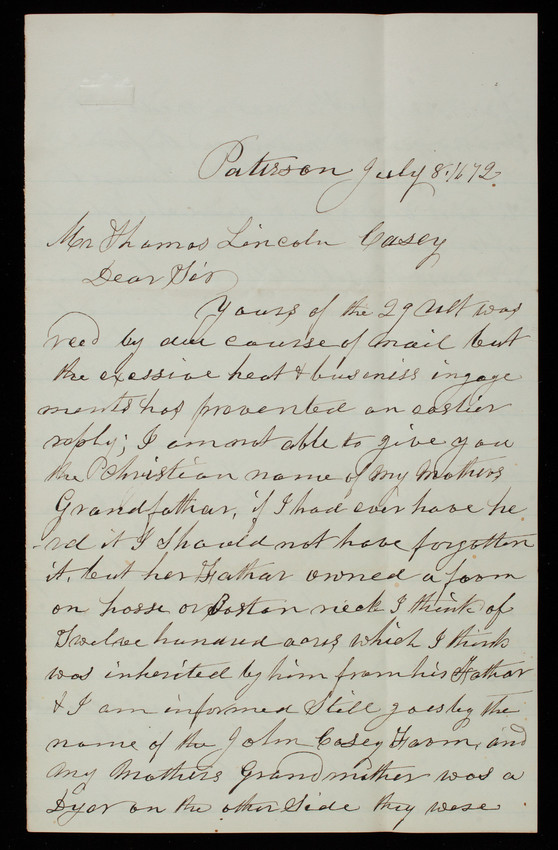 Paterson July 8. 1872
Mr Thomas Lincoln Casey
Dear Sir
Yours of the 29 ult was
recd by due course of mail but
the exessive heat & business ingage
ments has provented an earlier
reply; I am not able to give you
the Christian name of my Mothers
Grandfathar, if I had ever have he
-rd it I Should not have forgotten
it, but her Fathar owned a farm
on hosse or Boston neck I think of
Twelve hundred acres which I think
was inherited by him from his Fathar
& I am informed Still goes by the
name of the John Casey Farm, and
my Mothers Grandmither was a
Dyar on the other Side they were